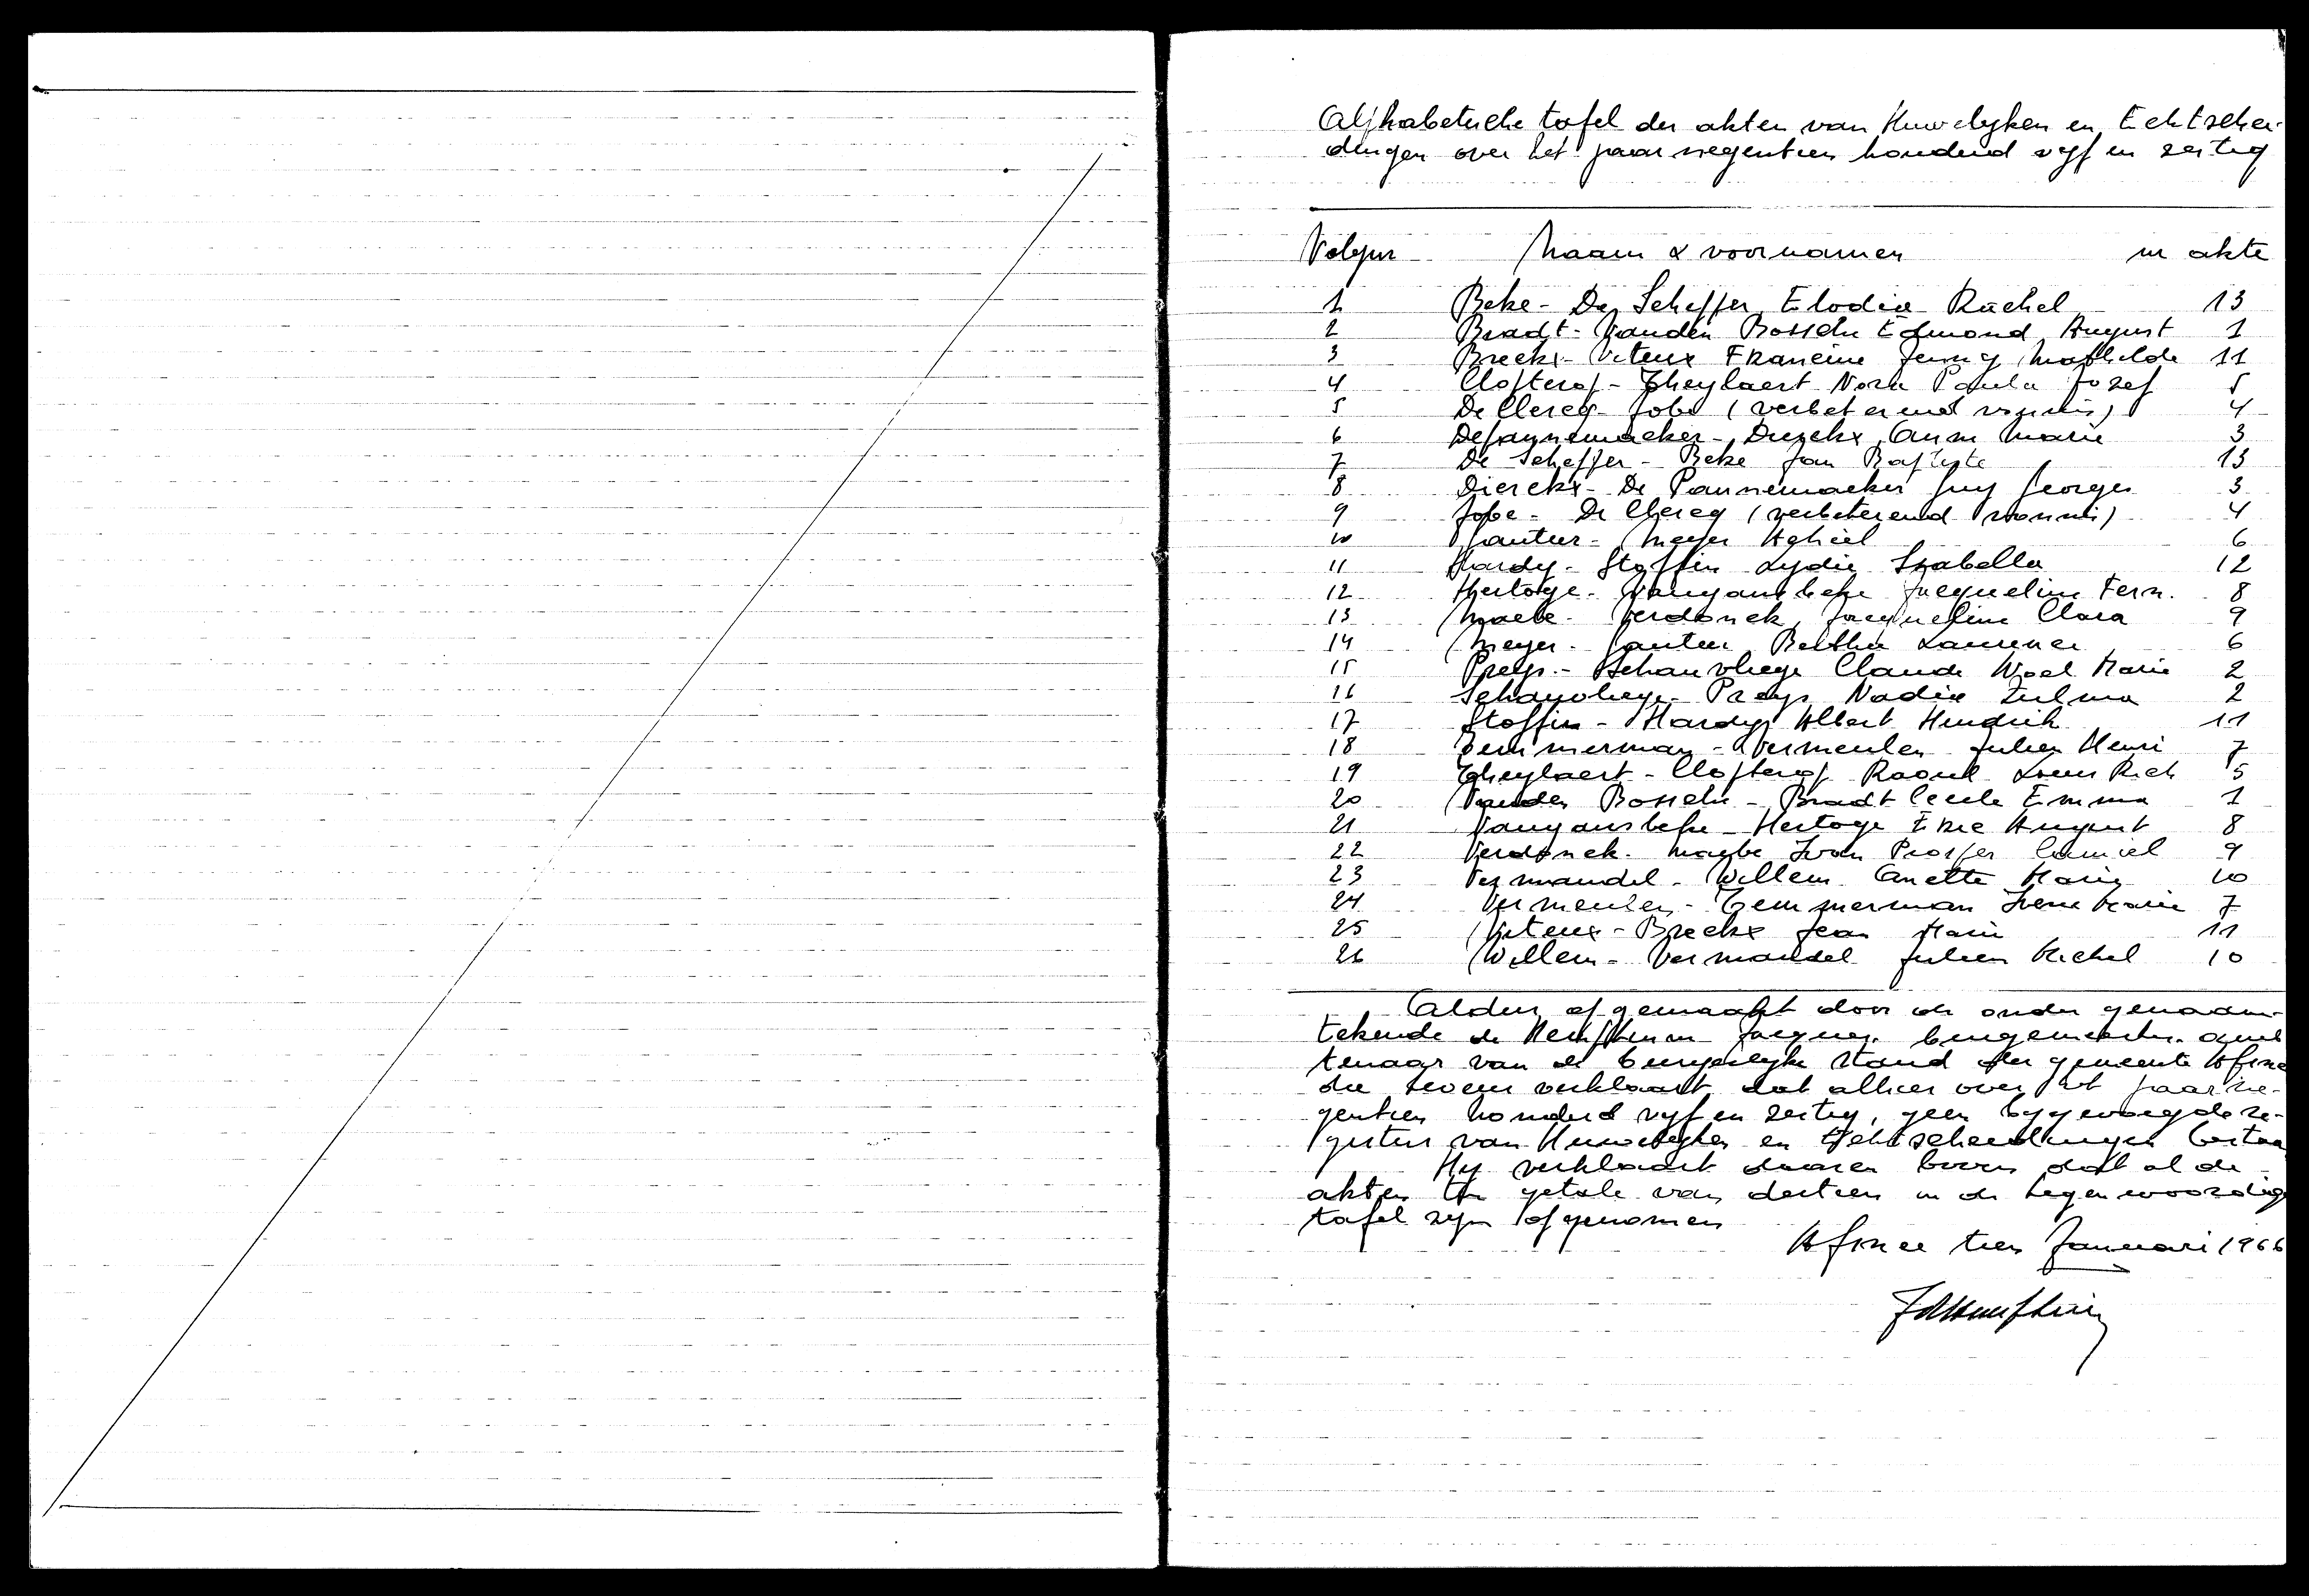 Alphabetische tafel der akten van Huwelyken en Echtschei-
dingen over het jaar negentien honderd vyf en zestig
Volgnr Naam & voornamen nr akte
1 Beke - De Scheffer Elodie Rachel 13
2 Bradt - Vanden Bossche Edmond August 1
3 Breckx - Viteux Francine Jenny Mathilde 11
4 Clopterop - Theylaert Nora Paula Jozef 5
5 De Clercq - Jobe (verbeterend vonnis) 4
6 Depannemaeker - Dierckx Anne Marie 3
7 De Scheffer - Beke Jan Baptiste 13
8 Dierckx - De Pannemaeker Guy Georges 3
9 Jobe - De Clercq (verbeterend vonnis) 4
10 Gauteur - Meyer Achiel 6
11 Hardy - Stoffin Lydie Isabella 12
12 Hertoge - Vangansbeke Jacqueline Fern. 8
13 Maebe - Verdonck Jacqueline Clara 9
14 Meyer - Gauteur Bertha Laurence 6
15 Preys - Schauvliege Claude Noel Marie 2
16 Schauvliege - Preys Nadia Zulma 2
17 Stoffin - Hardy Albert Hendrik 11
18 Temmerman - Vermeulen Julien Henri 7
19 Theylaert - Clopterop Raoul Louis Rich 5
20 Vanden Bossche - Bradt Cecile Emma 1
21 Vangansbeke - Hertoge Eric August 8
22 Verdonck - Maebe Ivan Prosper Camiel 9
23 Vermandel - Willem Anette Marie 10
24 Vermeulen - Temmerman Irene Marie 7
25 Viteux - Breckx Jean Marie 11
26 Willem - Vermandel Julien Michel 10
Aldus opgemaakt door de onder
tekende de Hemptinne Jacques burgemeester
tenaar van de burgerlyke stand der gemeente
die tevens verklaart dat alhier over het jaar ne-
gentien honderd vyf en zestig, geen bygevoegde re-
gisters van Huwelyken en Echtscheidingen bestaan
Hy verklaart daaren boven dat al de
akten ten getale van dertien in de tegenwoordige
tafel zyn opgenomen
tien Januari 1966